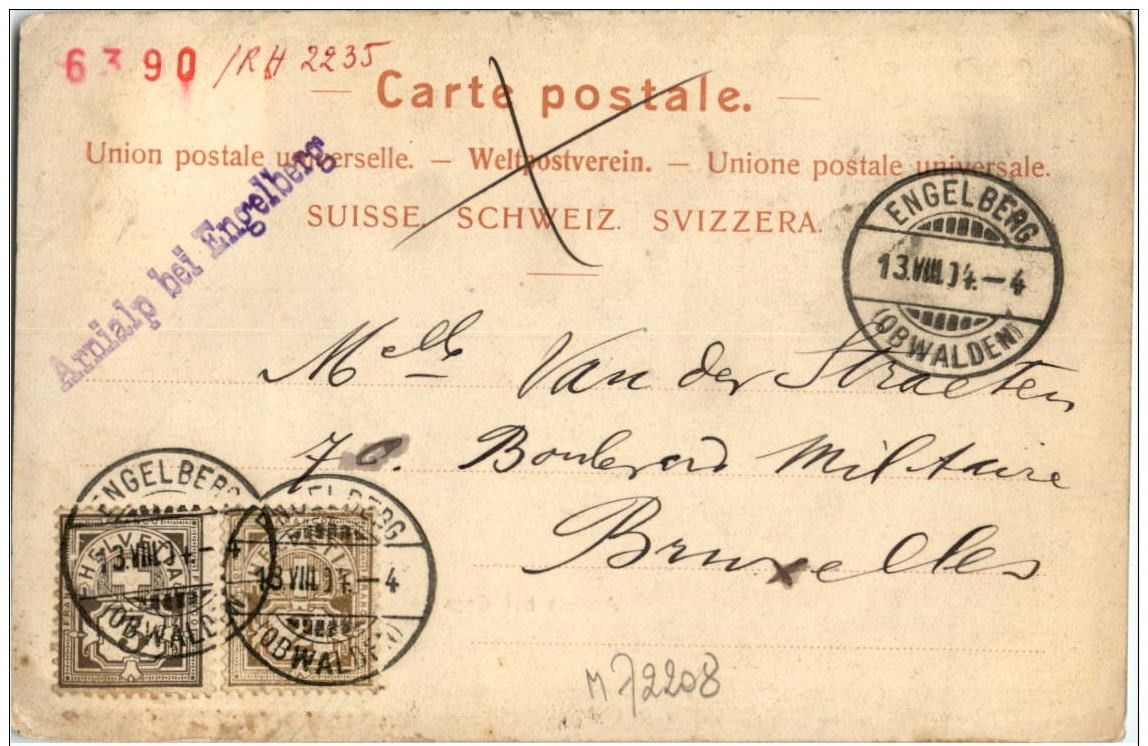 6390 /RH 2235
Carte postale.
Union postale universelle. — Weltpostverein. — Unione postale universale.
SUISSE. SCHWEIZ. SVIZZERA.
Arnialp bei Engelberg
ENGELBERG
13.VIII.04.-4
(OBWALDEN)
Melle Van der Straeten
70. Boulevard Militaire
Bruxelles
ENGELBERG
13.VIII.04.-4
(OBWALDEN)
HELVETIA
ENGELBERG
13.VIII.04.-4
(OBWALDEN)
HELVETIA
M 72208